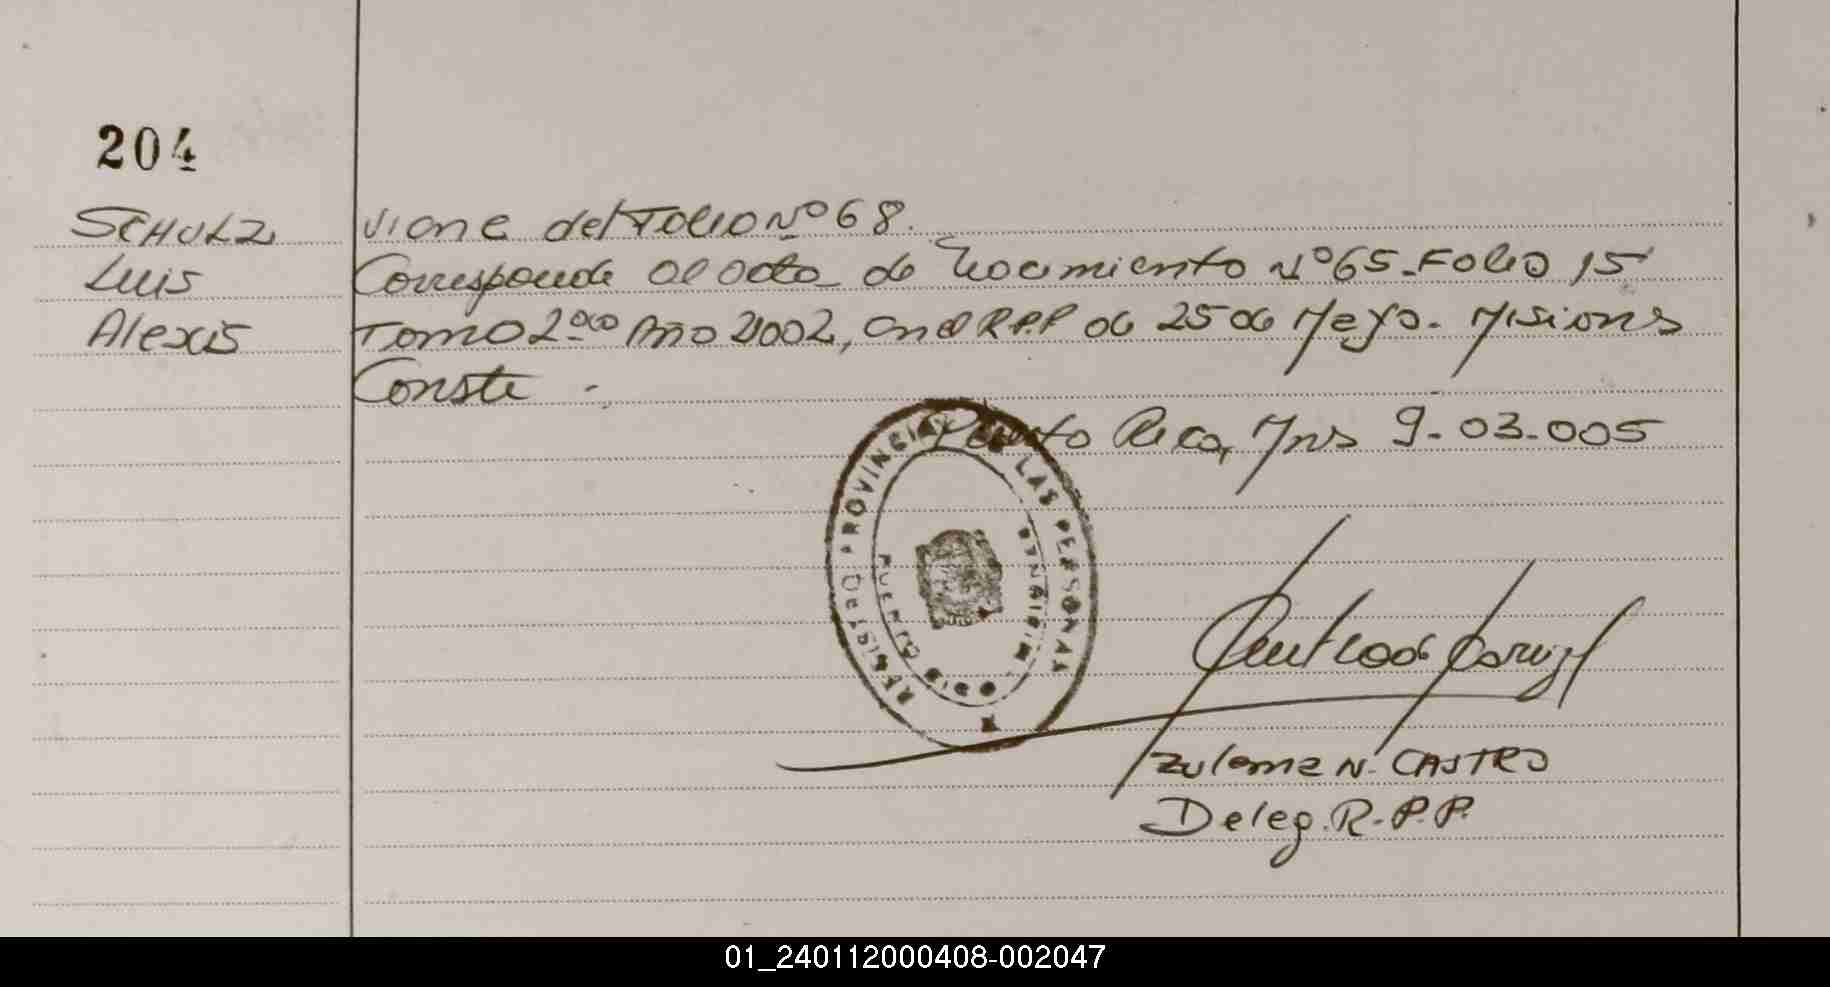 204
SCHULZ
Luis
Alexis
viene del Folio Nº 68.
Corresponde al acta de Nacimiento Nº 65-Folio 15
Tomo 2do Año 2002, en el R.P.P de 25 de Mayo. Misiones
Conste -
Puerto Rico, Mns 9-03-005
REGISTRO PROVINCIAL DE LAS PERSONAS
PUERTO RICO
MISIONES
Zulema N. CASTRO
Deleg. R.P.P.
01_240112000408-002047